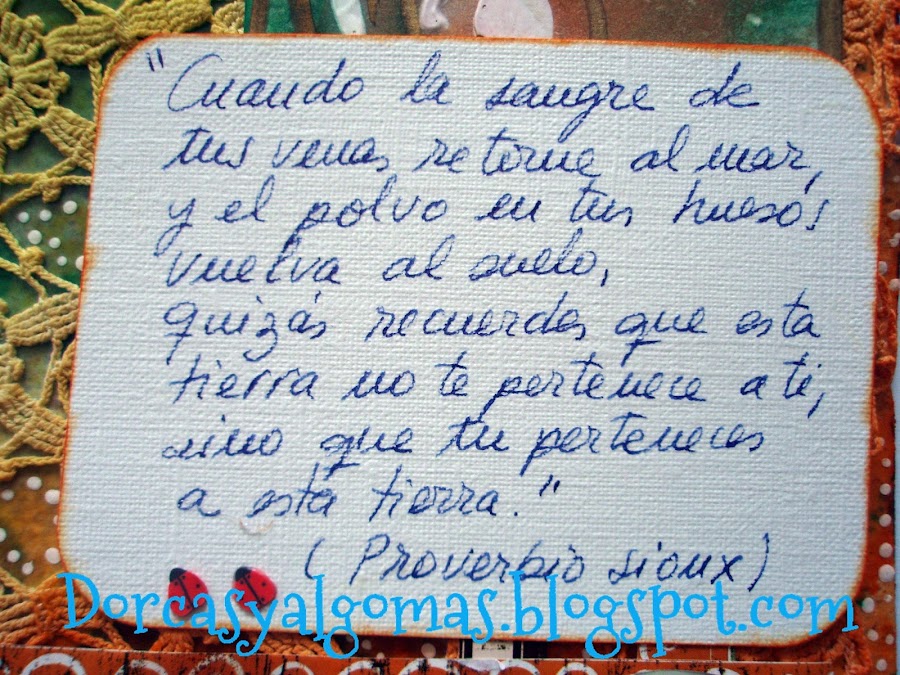 "Cuando la sangre de
tus venas retorne al mar,
y el polvo en tus huesos
vuelva al suelo,
quizás recuerdes que esta
tierra no te pertenece a ti,
sino que tu perteneces
a esta tierra."
( Proverbio sioux )
Dorcasyalgomas.blogspot.com